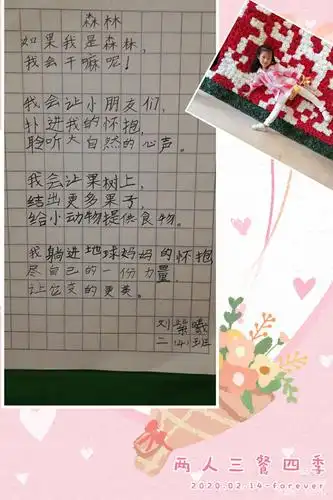 森林
如果我是森林,
我会干嘛呢!
我会让小朋友们,
扑进我的怀抱,
聆听大自然的心声。
我会让果树上,
结出更多果子,
给小动物提供食物。
我躺进地球妈妈的怀抱
尽自己的一份力量,
让它变的更美。
刘紫曦
二(4)班
两人三餐四季
2020.02.14-forever